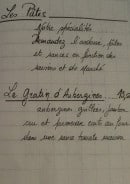 Les Pâtes
Notre spécialité
Demandez l'ardoise pâtes
et sauces en fonction des
saisons et du marché
Le Gratin d'Aubergines
aubergines grillées, jambon
cru et parmesan cuits au four
dans une sauce tomate maison